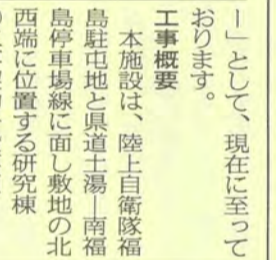 ー」として、現在に至って
おります。
工事概要
　本施設は、陸上自衛隊福
島駐屯地と県道土湯―南福
島停車場線に面し敷地の北
西端に位置する研究棟